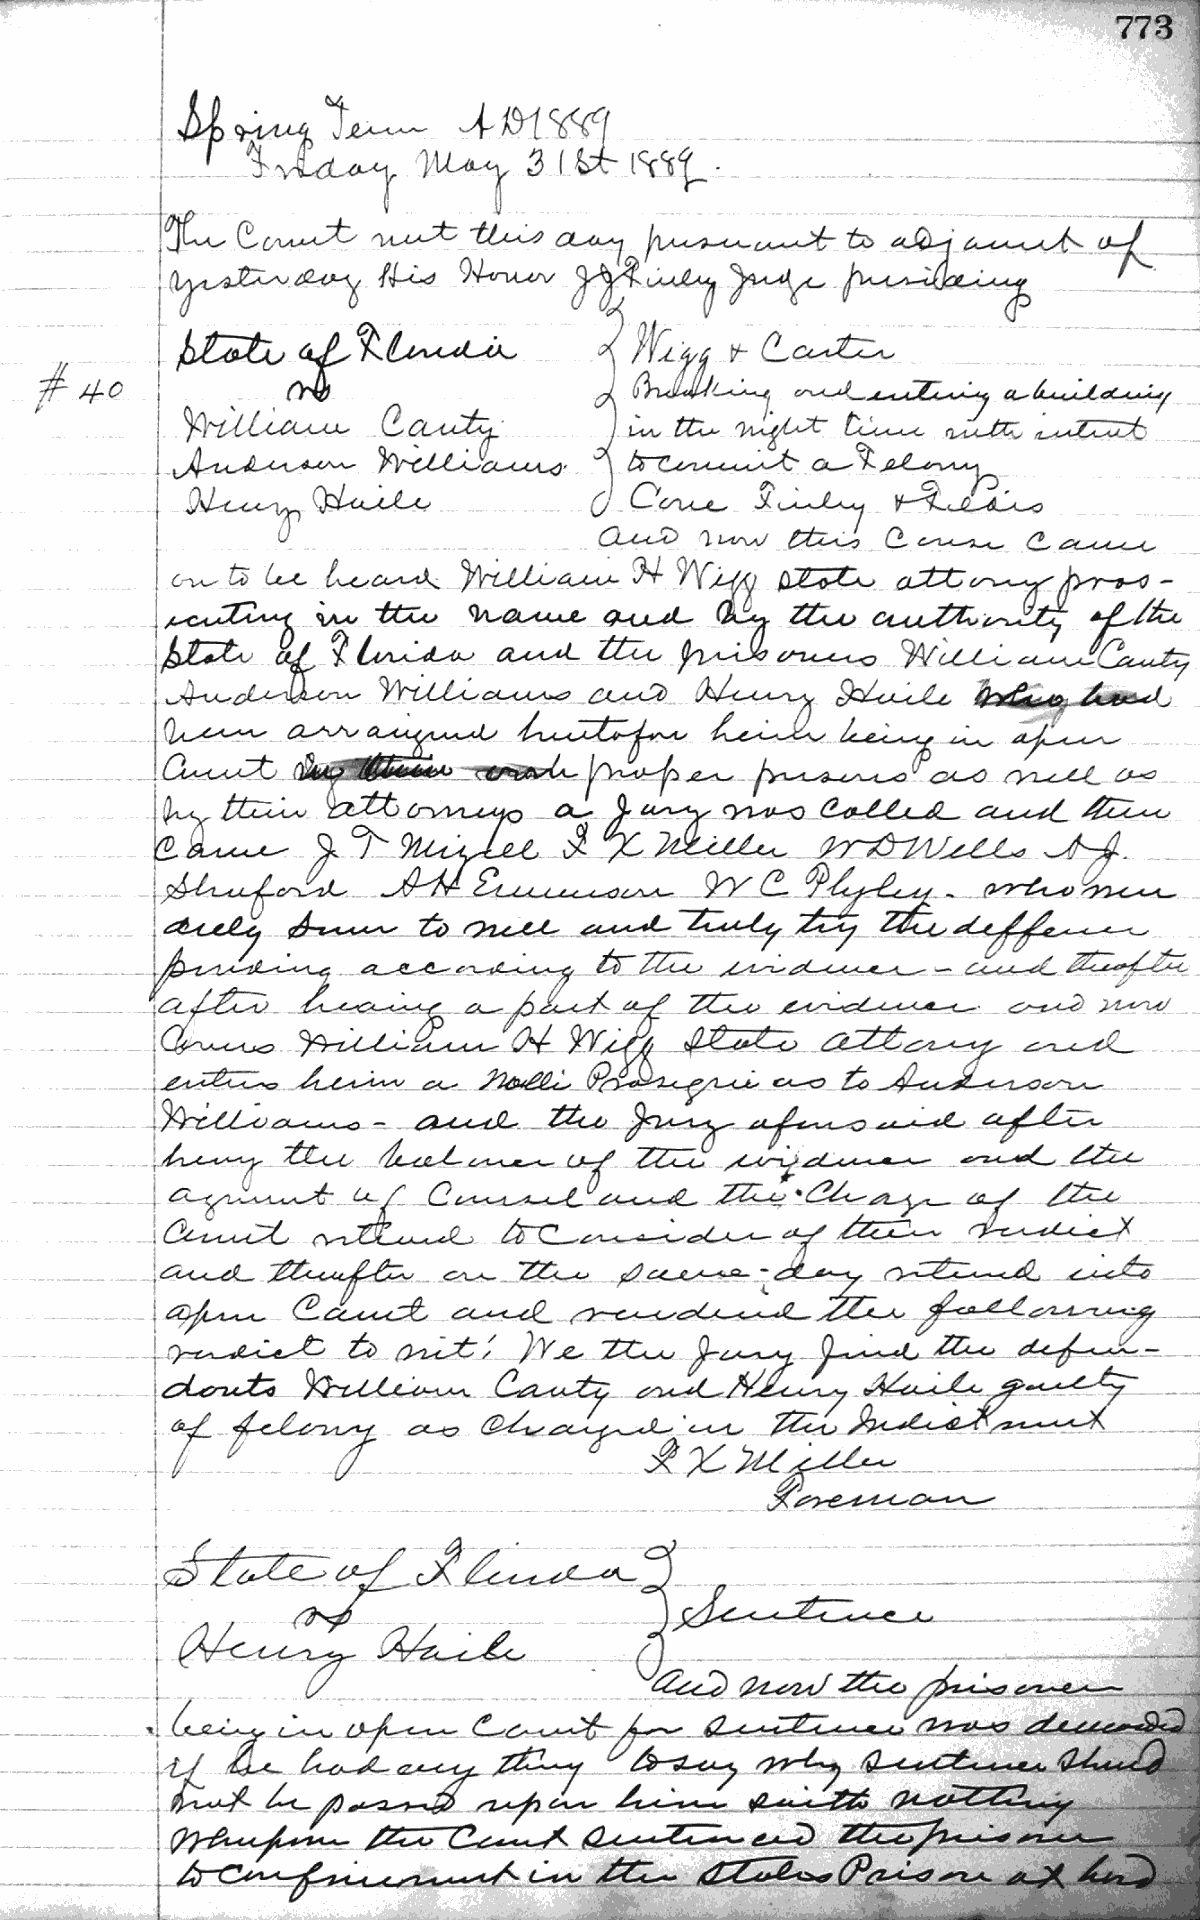 773
Spring Term AD 1889
Friday May 31st 1889.
The Court met this day pursuant to adjournt of
yesterday His Honor J J Finley Judge presiding
State of Florida } Wigg & Carter
# 40
vs } Breaking and entering a building
William Canty } in the night time with intent
Anderson Williams } to commit a Felony
Henry Haile } Cone Finley &
and now this Cause came
on to be heard William H Wigg State attorny pros-
ecuting in the name and by the authority of the
State of Florida and the prisoners William Canty
Anderson Williams and Henry Haile who had
been arraigned heretofore herein being in open
Court proper persons as well as
by their attorneys a Jury was called and then
came J T Mizell F X Miller W D Wells A J.
Shuford A H Emmerson W C Plyley - who were
duely sworn to well and truly try the
pending according to the evidence - and theafter
after heaing a part of the evidence and now
Comes William H Wigg State attorny and
enters herin a Nolli Prosequi as to Anderson
Williams - and the Jury aforesaid after
the balance of the evidence and the
agrument of Counsel and the Charge of the
Court retired to Consider of their verdict
and theafter on the same day returned into
open Court and rendered the following
verdict to wit! We the Jury find the defen-
dants William Canty and Henry Haile guilty
of felony as charged in the Indictment
F X Miller
Foreman
State of Florida }
vs } Sentence
Henry Haile }
and now the prisoner
being in open Court for sentence was demanded
if he had any thing to say why sentence should
not be passed upon him saith nothing
Whereupon the Court sentenced the prisoner
to confinement in the States Prison at hard